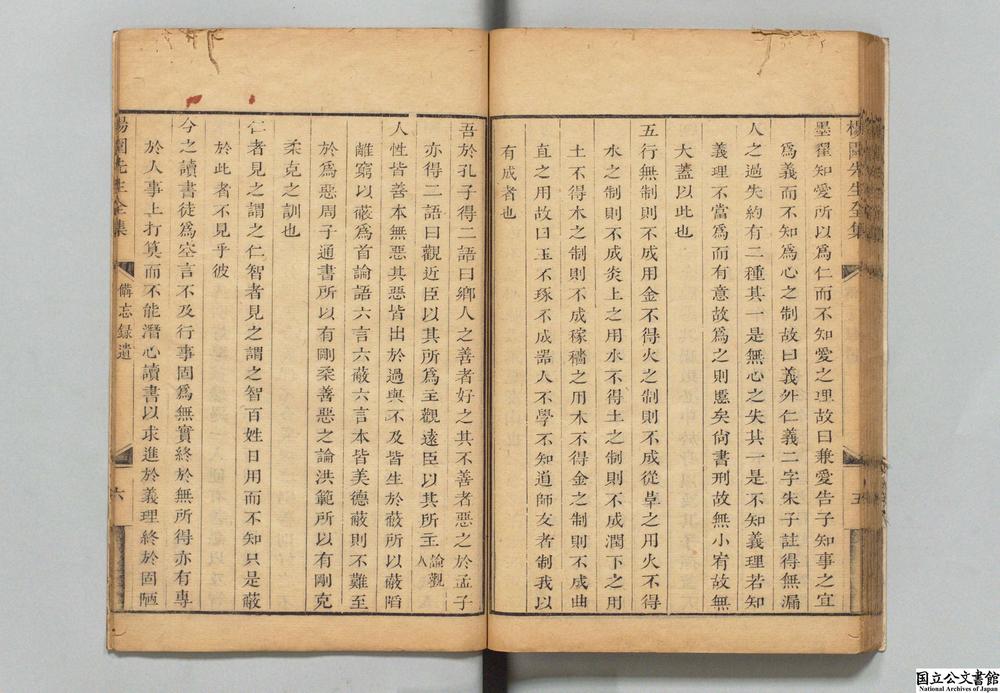 楊園先生全集
五
墨翟知愛所以爲仁而不知愛之理故曰兼愛告子知事之宜
爲義而不知爲心之制故曰義外仁義二字朱子註得無漏
人之過失約有二種其一是無心之失其一是不知義理若知
義理不當爲而有意故爲之則慝矣尚書刑故無小宥故無
大蓋以此也
五行無制則不成用金不得火之制則不成從革之用火不得
水之制則不成炎上之用水不得土之制則不成潤下之用
土不得木之制則不成稼穡之用木不得金之制則不成曲
直之用故曰玉不琢不成器人不學不知道師友者制我以
有成者也
吾於孔子得二語曰鄉人之善者好之其不善者惡之於孟子
亦得二語曰觀近臣以其所爲主觀遠臣以其所主論觀人
人性皆善本無惡其惡皆出於過與不及皆生於蔽所以蔽陷
離窮以蔽爲首論語六言六蔽六言本皆美德蔽則不難至
於爲惡周子通書所以有剛柔善惡之論洪範所以有剛克
柔克之訓也
仁者見之謂之仁智者見之謂之智百姓日用而不知只是蔽
於此者不見乎彼
今之讀書徒爲空言不及行事固爲無實終於無所得亦有專
於人事上打算而不能潛心讀書以求進於義理終於固陋
楊園先生全集
備忘錄遺
六
国立公文書館
National Archives of Japan